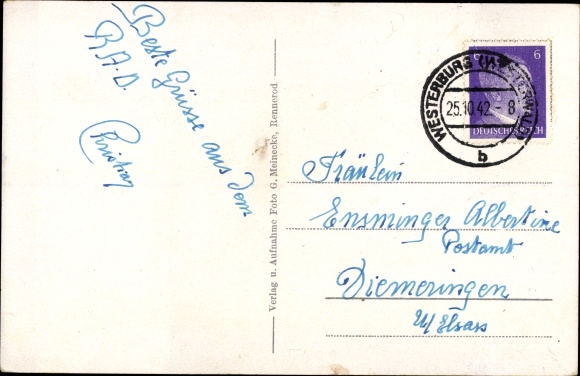 Beste Grüsse aus dem
R.A.D.
Verlag u. Aufnahme Foto G. Meinecke, Rennerod
WESTERBURG (WESTERWALD)
25.10.42.-8
b
6
DEUTSCHES REICH
Fräulein
Ensminger Albertine
Postamt
Diemeringen
U/Elsass